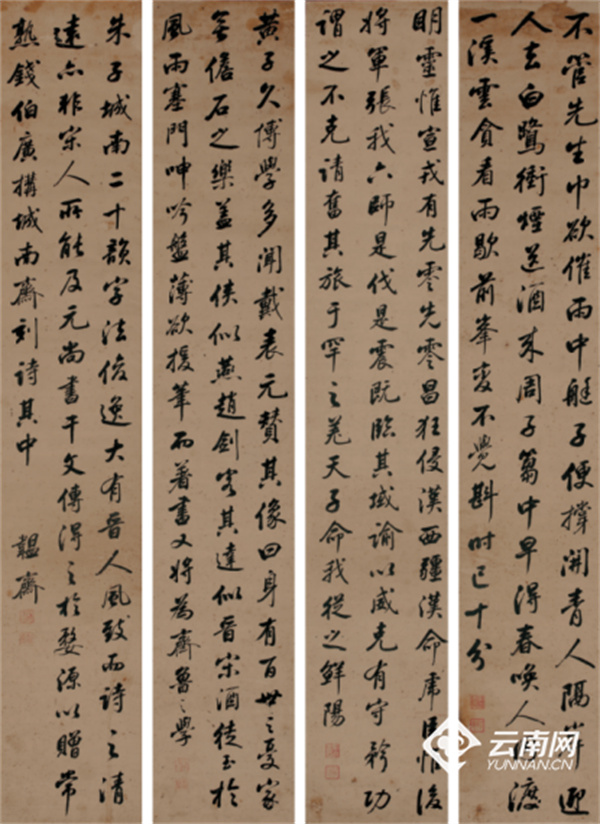 不管先生巾欲催雨中艇子便撐開青人隔岸迎
人去白鷺衝煙送酒來周子篘中早得春喚人渡
一溪雲貪看雨歇前峯變不覺斟時已十分
明靈惟宣戎有先零先零昌狂侵漢西疆漢命虎臣惟後
將軍張我六師是伐是震既臨其域諭以威克有守矜功
謂之不克請奮其旅于罕之羌天子命我從之鮮陽
黃子久博學多聞戴表元贊其像曰身有百世之憂家
無儋石之樂蓋其俠似燕趙劍客其達似晉宋酒徒至於
風雨塞門呻吟盤薄欲援筆而著書又將為齊魯之學
朱子城南二十韻字法俊逸大有晉人風致而詩之清
遠亦非宋人所能及元尚書干文傳得之於婺源以贈常
熟錢伯廣構城南齋刻詩其中
韞齋
云南网
YUNNAN.CN